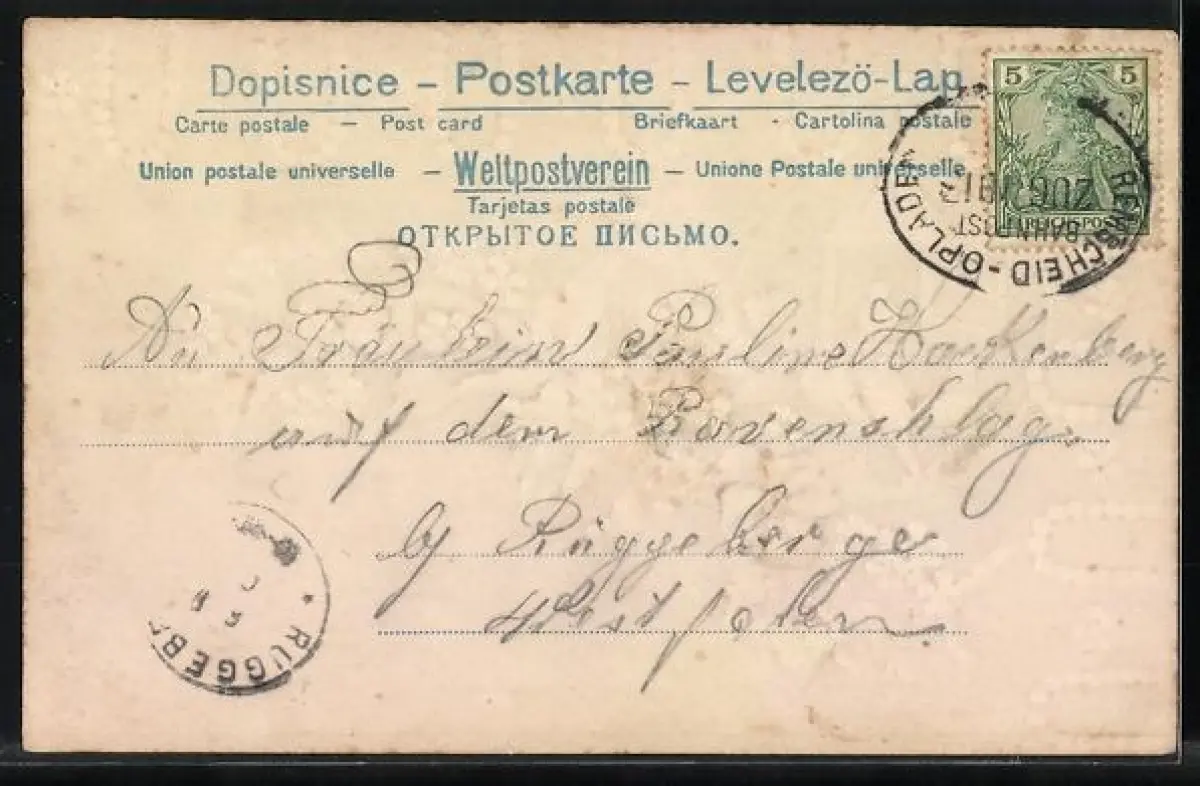 Dopisnice – Postkarte – Levelezö-Lap
Carte postale – Post card Briefkaart - Cartolina postale
Union postale universelle – Weltpostverein – Unione Postale universelle
Tarjetas postale
ОТКРЫТОЕ ПИСЬМО.
5 5
REICHSPOST
REMSCHEID - OPLADEN
BAHNPOST
ZUG
An Fräulein Pauline Hackenberg
auf dem Ravenschlag
by Rüggeberge
Westfalen
* RÜGGEBE